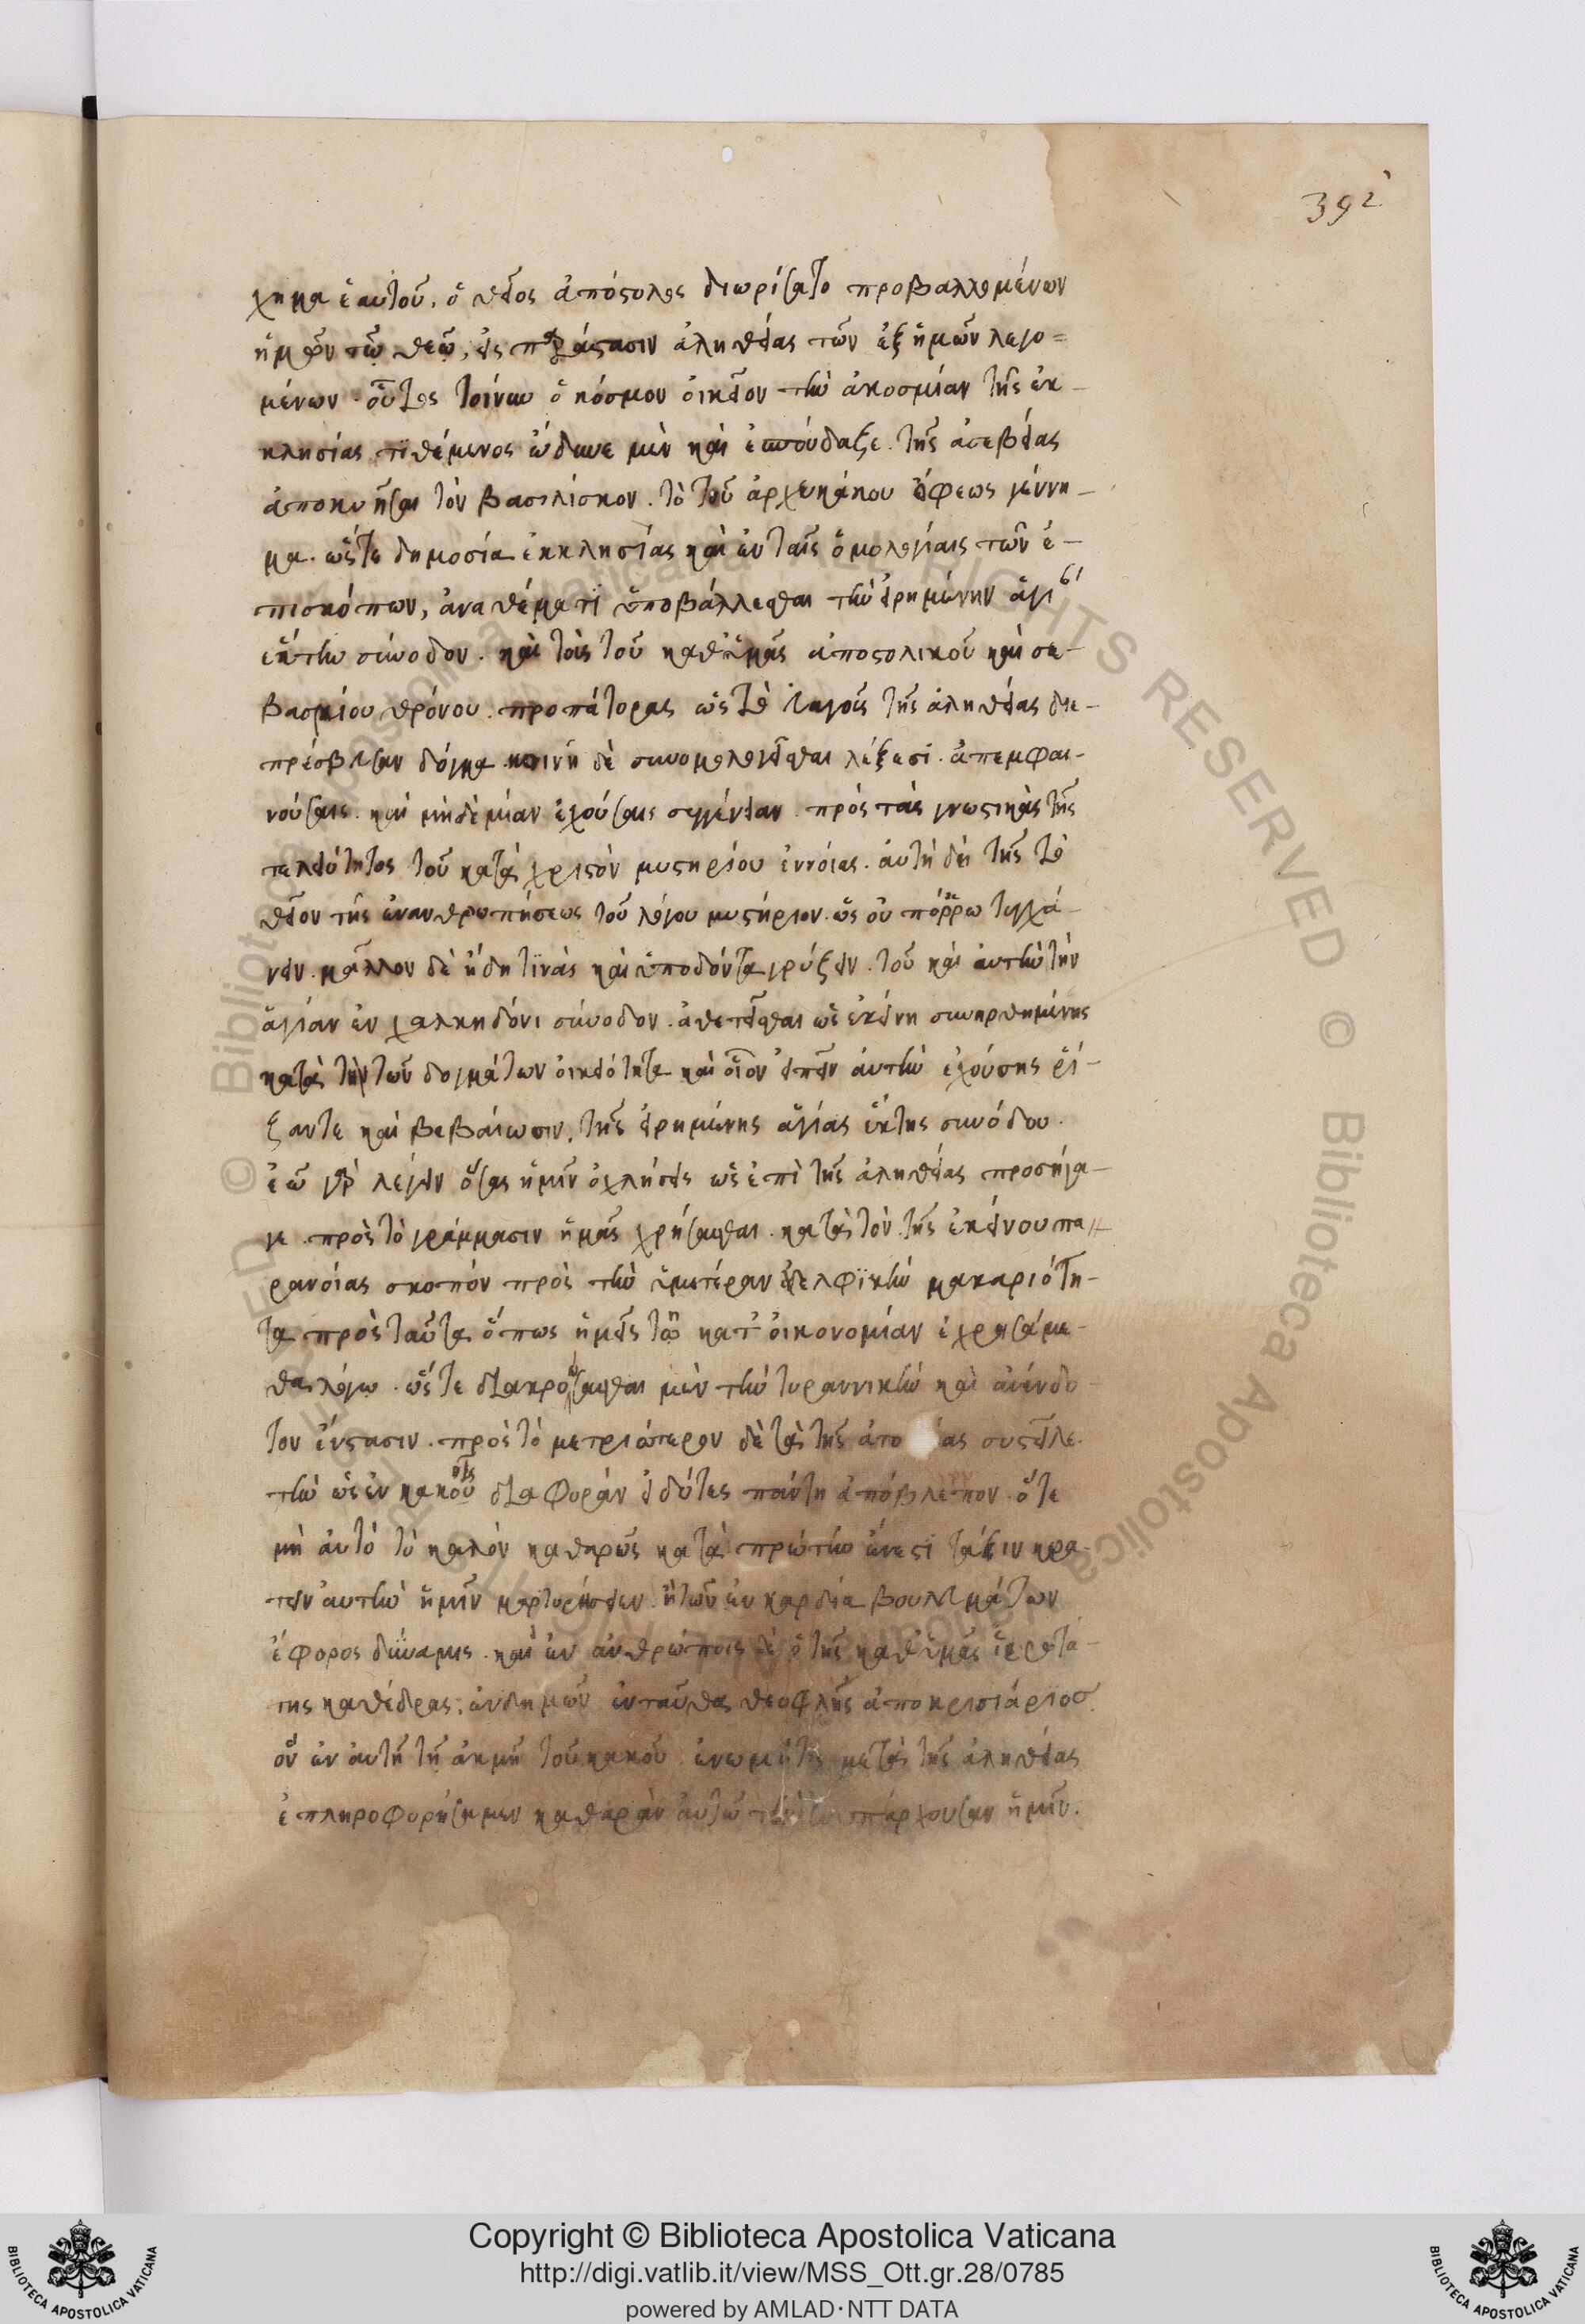 392
χημα ἑαυτοῦ, ὁ θεῖος ἀπόστολος διωρίσατο προβαλλομένων
ἡμῶν τῷ θεῷ, εἰς παράστασιν ἀληθείας τῶν ἐξ ἡμῶν λεγο=
μένων. οὗτος τοίνυν ὁ κόσμον οἰκεῖον τὴν ἀκοσμίαν τῆς ἐκ-
κλησίας τιθέμενος ὤδινε μὲν καὶ ἐσπούδαζε. τῆς ἀσεβείας
ἀποκυῆσαι τὸν βασιλίσκον. τὸ τοῦ ἀρχεκάκου ὄφεως γέννη-
μα. ὥστε δημοσία ἐκκλησίας καὶ ἐν ταῖς ὁμολογίαις τῶν ἐ-
πισκόπων, ἀναθέματι ὑποβάλλεσθαι τὴν εἰρημένην ἁγί
ἕκτην σύνοδον. καὶ τοὺς τοῦ καθ' ἡμᾶς ἀποστολικοῦ καὶ σε-
βασμίου θρόνου. προπάτορας ὥς τε ταγοὺς τῆς ἀληθείας διε-
πρέσβευσαν δόγμα κοινῇ δὲ συνομολογεῖσθαι λέξεσι. ἀπεμφαι-
νούσαις. καὶ μηδὲ μίαν ἐχούσαις συγγένειαν. πρὸς τὰς γνωστικὰς τῆς
τελειότητος τοῦ κατὰ χριστὸν μυστηρίου ἐννοίας. αὐτὴ δὴ τῆς τὸ
θεῖον τῆς ἐνανθρωπήσεως τοῦ λόγου μυστήριον. ὡς οὐ πόρρω τυγχά-
νειν. μᾶλλον δὲ ἤδη τινὰς καὶ ὑποδόντα γρύζειν. τοῦ καὶ αὐτὴν τὴν
ἁγίαν ἐν χαλκηδόνι σύνοδον. ἀθετεῖσθαι ὡς ἐκείνη συνηρθημένης
κατὰ τὴν τῶν δογμάτων οἰκειότητα καὶ οἷον εἰπεῖν αὐτὴν ἐχούσης ῥί-
ζαντε καὶ βεβαίωσιν, τῆς εἰρημένης ἁγίας ἕκτης συνόδου.
ἐῶ γὰρ λέγειν ὅσας ἡμῖν ὀχλήσεις ὡς ἐπὶ τῆς ἀληθείας προσήγα-
γε. πρὸς τὸ γράμμασιν ἡμᾶς χρήσασθαι. κατὰ τὸν τῆς ἐκείνου πα//
ρανοίας σκοπόν πρὸς τὴν ὑμετέραν ἀδελφικὴν μακαριότη-
τα πρὸς ταῦτα ὅπως ἡμεῖς τῷ κατ' οἰκονομίαν ἐχρησάμε-
θα λόγω. ὥστε διακρούσασθαι μὲν τὴν τυραννικὴν καὶ ἀνένδο-
τον ἔνστασιν. πρὸς τὸ μετριώτερον δὲ τὰ τῆς ἀτο ίας συστεῖλε.
τὴν ὡς ἐν κακοῖς διαφορὰν εἰδότες πάντη ἀπόβλεπον. ὅτε
μὴ αὐτὸ τὸ καλὸν καθαρῶς κατὰ πρώτην ἔνεστι τάξιν κρα-
τεῖν αὐτὴν ἡμῖν μαρτυρήσειεν ἡ τῶν ἐν καρδία βουλευμάτων
ἔφορος δύναμις. καὶ ἐν ἀνθρώποις δὲ ὁ τῆς καθ' ὑμᾶς ἱερωτά-
της καθέδρας. ἐνδημῶν ἐνταῦθα θεοφιλὴς ἀποκρισιάριος.
ὃν ἐν αὐτῇ τῇ ἀκμῇ τοῦ κακοῦ ἐνωμότως μετὰ τῆς ἀληθείας
ἐπληροφορήσαμεν καθαρὰν αὐτῷ ὑπάρχουσαν ἡμῖν.
Copyright © Biblioteca Apostolica Vaticana
http://digi.vatlib.it/view/MSS_Ott.gr.28/0785
powered by AMLAD·NTT DATA